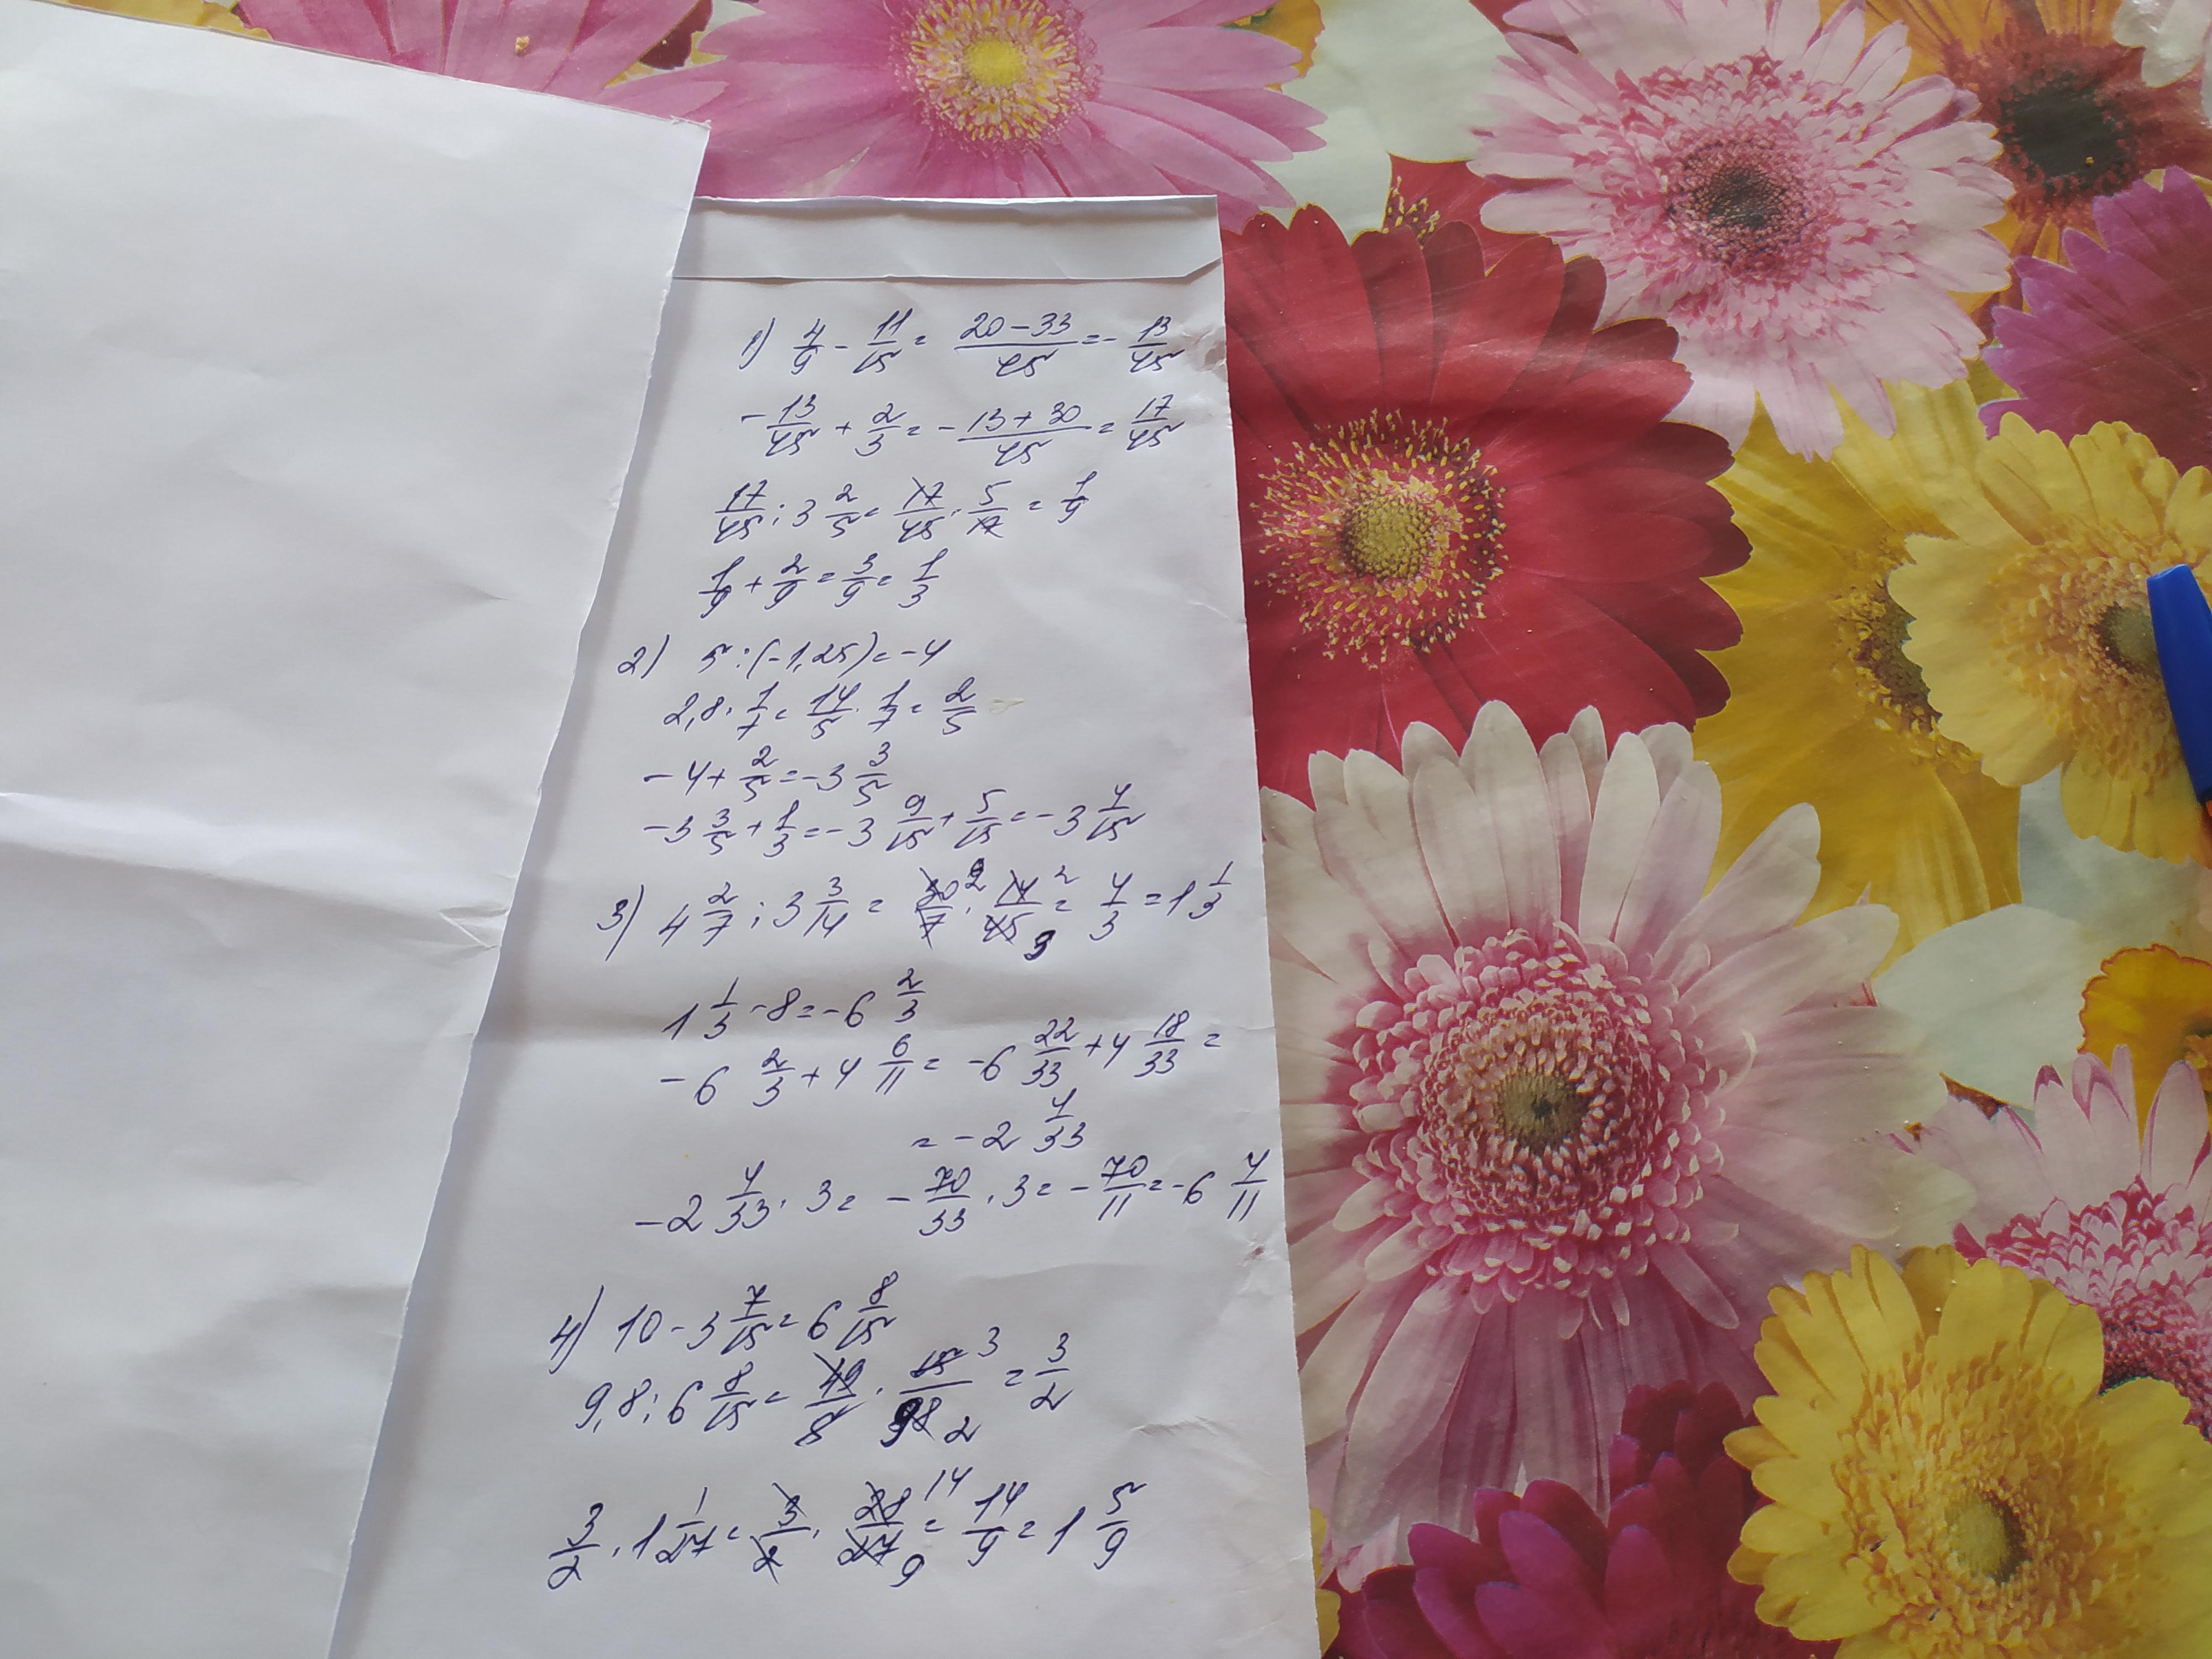 1) 4/9 - 11/15 = (20-33)/45 = - 13/45
- 13/45 + 2/3 = (-13+30)/45 = 17/45
17/45 : 3 2/5 = 17/45 · 5/17 = 1/9
1/9 + 2/9 = 3/9 = 1/3
2) 5 : (-1,25) = -4
2,8 · 1/7 = 14/5 · 1/7 = 2/5
-4 + 2/5 = -3 3/5
-3 3/5 + 1/3 = -3 9/15 + 5/15 = -3 4/15
3) 4 2/7 : 3 3/14 = 30/7 2 · 14/45 2 3 = 4/3 = 1 1/3
1 1/3 - 8 = -6 2/3
-6 2/3 + 4 6/11 = -6 22/33 + 4 18/33 =
= -2 4/33
-2 4/33 · 3 = - 70/33 · 3 = - 70/11 = -6 4/11
4) 10 - 3 7/15 = 6 8/15
9,8 : 6 8/15 = 49/5 · 15/98 3 2 = 3/2
3/2 · 1 1/27 = 3/2 · 28/27 14 9 = 14/9 = 1 5/9